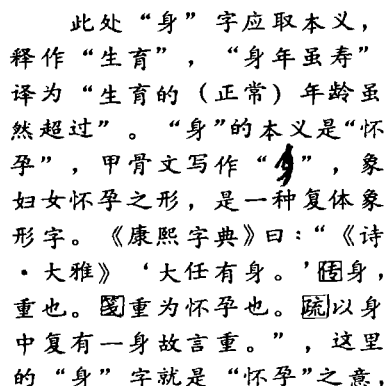 此处“身”字应取本义，
释作“生育”，“身年虽寿”
译为“生育的（正常）年龄虽
然超过”。“身”的本义是“怀
孕”，甲骨文写作“”，象
妇女怀孕之形，是一种复体象
形字。《康熙字典》曰：“《诗
·大雅》‘大任有身。’传身，
重也。笺重为怀孕也。疏以身
中复有一身故言重。”，这里
的“身”字就是“怀孕”之意，